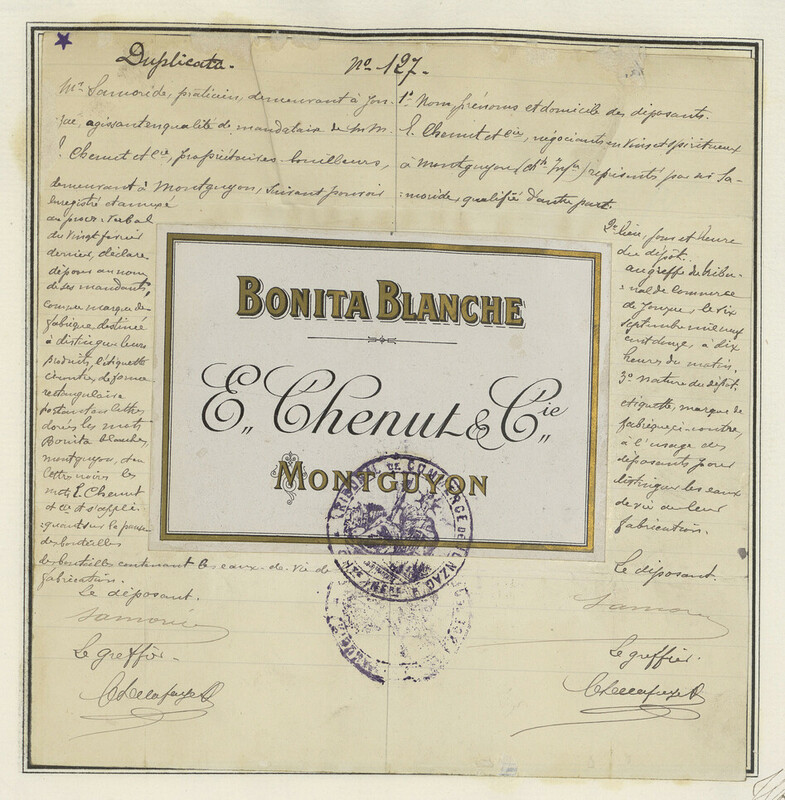 Duplicata.
No 127.
Mr Lamoride, praticien, demeurant à Jon-
zac, agissant en qualité de mandataire de M.M.
E. Chenut et Cie, propriétaires-bouilleurs,
demeurant à Montguyon, suivant pouvoir
enregistré et annexé
au procès-verbal
du vingt février
dernier, déclare
déposer au nom
de ses mandants,
comme marque de
fabrique destinée
à distinguer leurs
produits, l'étiquette
ci-contre, de forme
rectangulaire
portant en lettres
dorées les mots
Bonita blanche,
montguyon, et en
lettres noires les
mots E. Chenut
et Cie et s'appli-
quant sur la panse
des bouteilles
des bouteilles contenant les eaux-de-vie de
fabrication.
Le déposant.
Le greffier.
1o Nom, prénoms et domicile des déposants.
E. Chenut et Cie, négociants en vins et spiritueux
à Montguyon (Ch.te Infre) représentés par mr La-
moride, qualifié d'autre part.
2o lieu, jour et heure
du dépôt.
au greffe du tribu-
nal de Commerce
de Jonzac, le six
septembre mil neuf
cent douze, à dix
heures du matin.
3o nature du dépôt.
étiquette, marque de
fabrique ci-contre,
à l'usage des
déposants pour
distinguer les eaux
de vie de leur
fabrication.
Le déposant.
Le greffier.
BONITA BLANCHE
E. Chenut & Cie
MONTGUYON
TRIBUNAL DE COMMERCE DE JONZAC